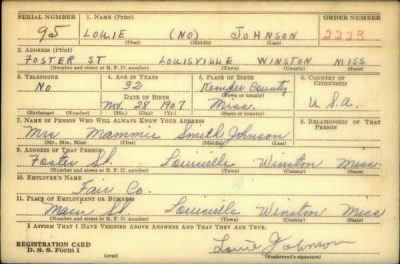 SERIAL NUMBER 1. NAME (Print) ORDER NUMBER
95 LOUIE (NO) JOHNSON 2223
(First) (Middle) (Last)
2. ADDRESS (Print)
FOSTER ST LOUISVILLE WINSTON MISS
(Number and street or R. F. D. number) (Town) (County) (State)
3. TELEPHONE 4. AGE IN YEARS 5. PLACE OF BIRTH 6. COUNTRY OF CITIZENSHIP
No 32 Kemper County
DATE OF BIRTH (Town or county)
Nov. 28 1907 Miss. U.S.A.
(Exchange) (Number) (Mo.) (Day) (Yr.) (State or country)
7. NAME OF PERSON WHO WILL ALWAYS KNOW YOUR ADDRESS 8. RELATIONSHIP OF THAT PERSON
Mrs Mammie Smith Johnson
(Mr., Mrs., Miss) (First) (Middle) (Last)
9. ADDRESS OF THAT PERSON
Foster St. Louisville Winston Miss
(Number and street or R. F. D. number) (Town) (County) (State)
10. EMPLOYER'S NAME
Fair Co.
11. PLACE OF EMPLOYMENT OR BUSINESS
Main St Louisville Winston Miss
(Number and street or R. F. D. number) (Town) (County) (State)
I AFFIRM THAT I HAVE VERIFIED ABOVE ANSWERS AND THAT THEY ARE TRUE.
REGISTRATION CARD
D. S. S. Form 1 (over) Louie Johnson
(Registrant's signature)